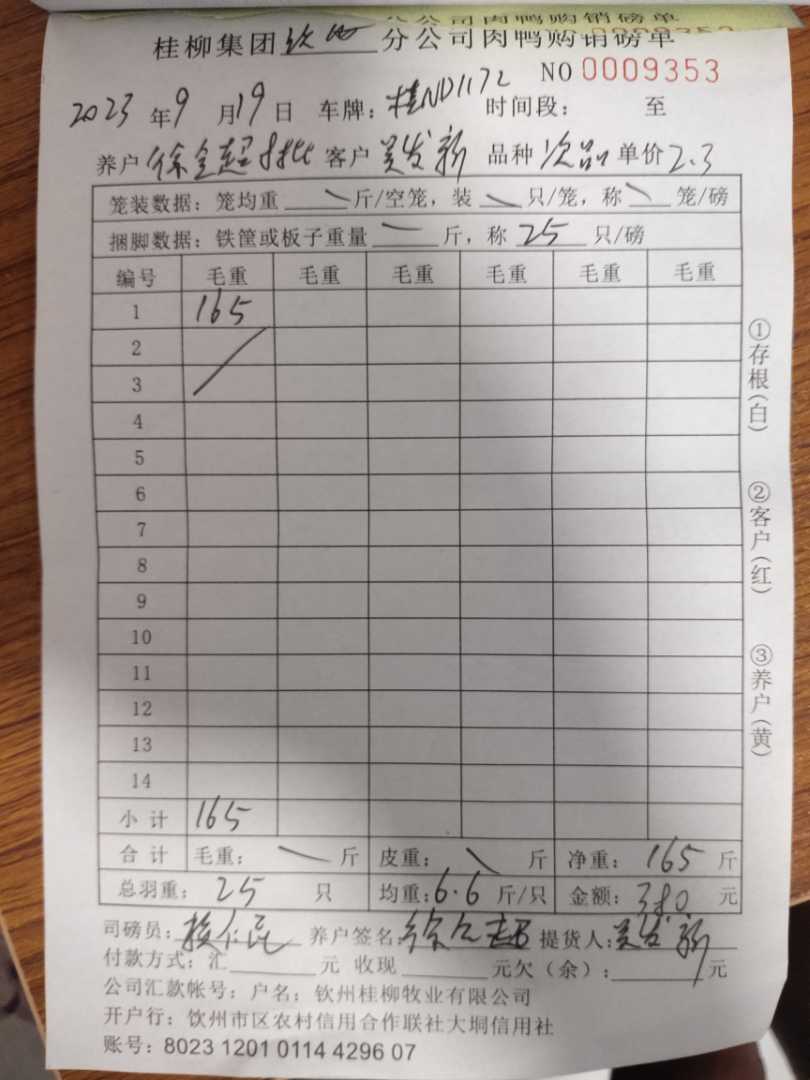 分公司肉鸭购销磅单
桂柳集团钦州分公司肉鸭购销磅单
NO 0009353
2023年9月19日 车牌:桂ND1172 时间段: 至
养户 徐全超 客户 吴发新 品种 次品 单价 2.3
笼装数据:笼均重 斤/空笼,装 只/笼,称 笼/磅
捆脚数据:铁筐或板子重量 斤,称 25 只/磅
编号 毛重 毛重 毛重 毛重 毛重 毛重
1 165
2
3
4
5
6
7
8
9
10
11
12
13
14
小计 165
合计 毛重: 斤 皮重: 斤 净重: 165 斤
总羽重: 25 只 均重: 6.6 斤/只 金额: 380 元
司磅员: 养户签名: 徐全超 提货人: 吴发新
付款方式:汇 元 收现 元欠(余): 元
公司汇款帐号:户名:钦州桂柳牧业有限公司
开户行:饮州市区农村信用合作联社大垌信用社
账号:8023 1201 0114 4296 07
①存根(白)
②客户(红)
③养户(黄)